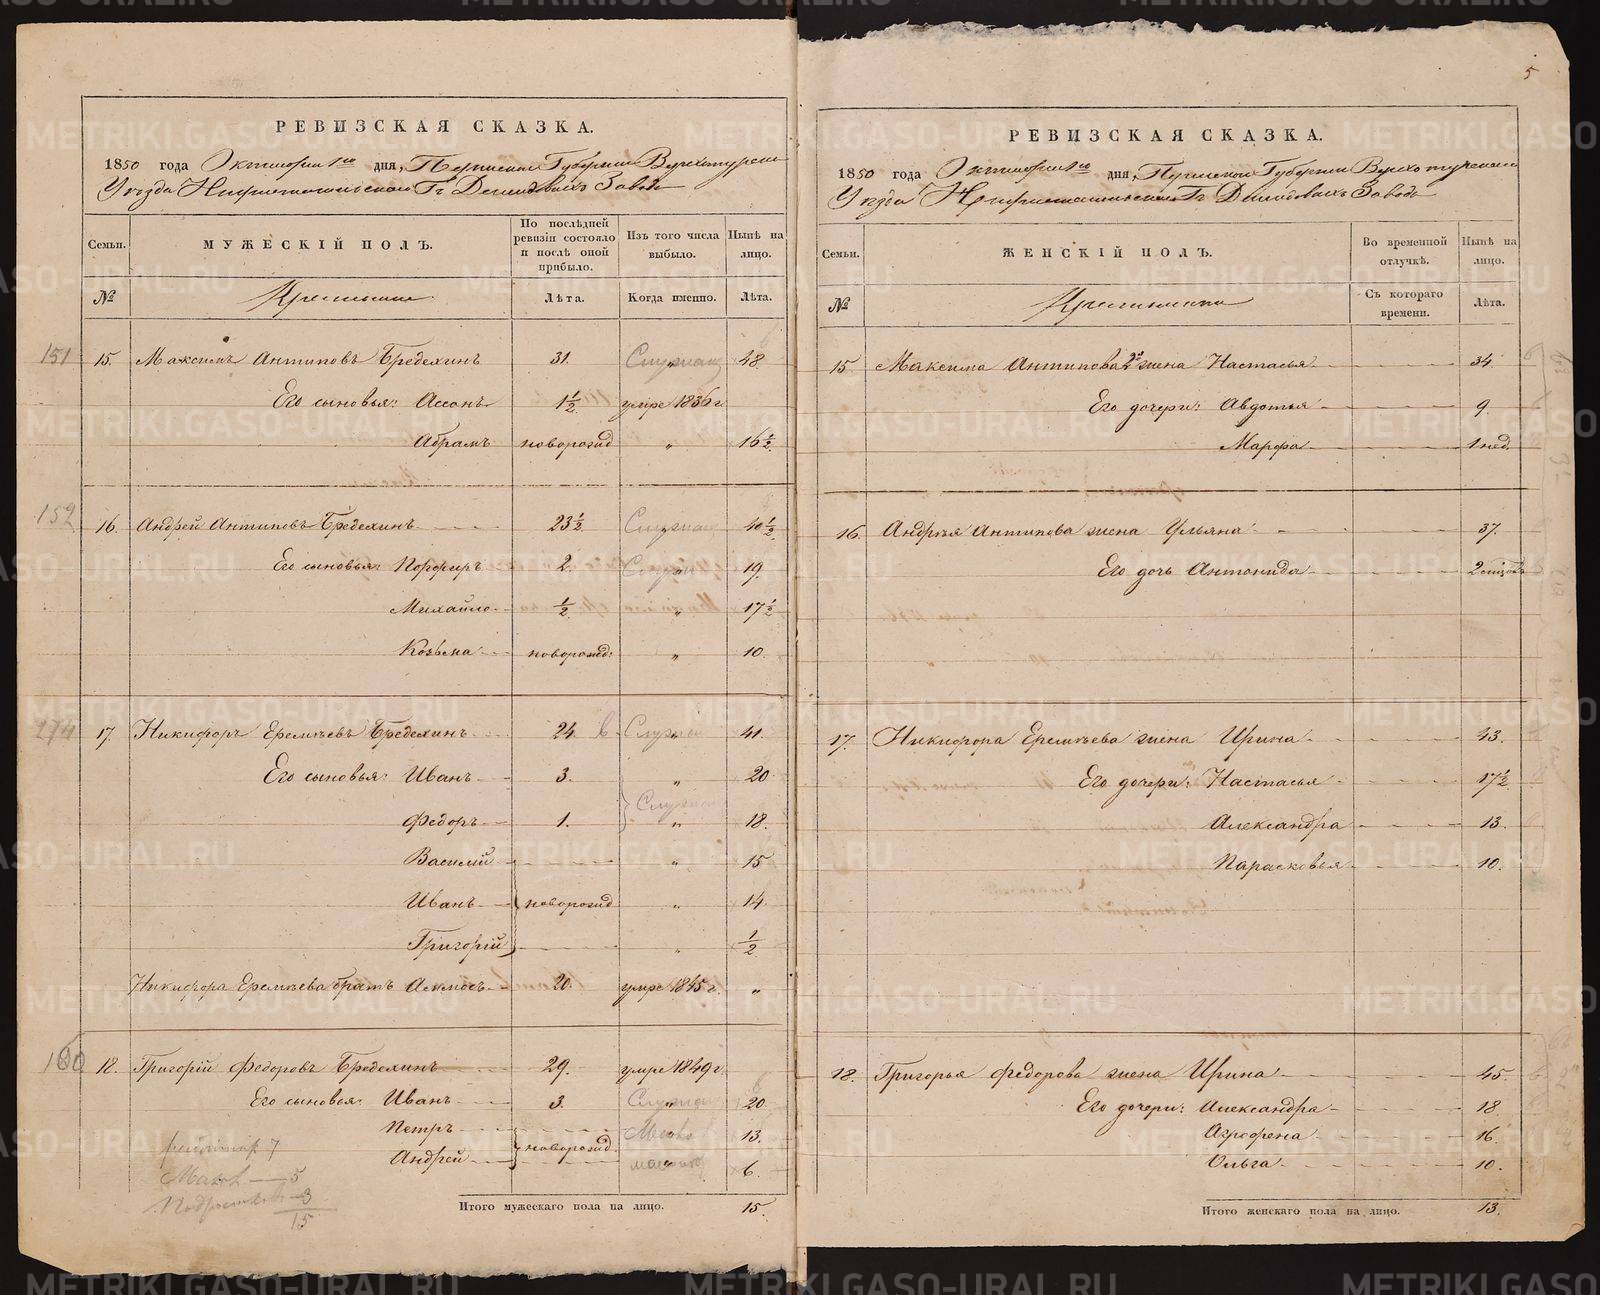 5
РЕВИЗСКАЯ СКАЗКА.
1850 года Октября 1го дня, Пермской Губернии Верхотурскаго
Уезда Нижнетагильскаго Гг Демидовыхъ Завода
Семьи. МУЖЕСКІЙ ПОЛЪ. По послѣдней ревизіи состояло и послѣ оной прибыло. Изъ того числа выбыло. Нынѣ на лицо.
№ Крестьяне Лѣта. Когда именно. Лѣта.
151 15. Максимъ Антиповъ Бределинъ 31. " 48.
Его сыновья: Ассонъ 1½. умре 1836 г
Абрамъ новорожд " 16½.
152 16. Андрей Антиповъ Бределинъ 23½. 40½.
Его сыновья: Порфиръ 2. 19.
Михайло ½. " 17½
Козьма новорожд: " 10.
174 17. Никифоръ Еремѣевъ Бределинъ 24. " 41.
Его сыновья: Иванъ 3. " 20.
Федоръ 1. " 18.
Василій " 15
Иванъ новорожд " 14
Григорій " ½.
Никифора Еремѣева братъ 20. умре 1845 г. "
18. Григорій Федоровъ Бределинъ 29. умре 1849 г
Его сыновья: Иванъ 3. " 20.
Петръ 13.
Андрей новорожд 6.
7
5
3
15
Итого мужескаго пола на лицо. 15.
РЕВИЗСКАЯ СКАЗКА.
1850 года Октября 1го дня, Пермской Губернии Верхотурскаго
Уезда Нижнетагильскаго Гг Демидовыхъ Завода
Семьи. ЖЕНСКІЙ ПОЛЪ. Во временной отлучкѣ. Нынѣ на лицо.
№ Крестьянки Съ котораго времени. Лѣта.
15 Максима Антипова 2я жена Настасья 34.
Его дочери: Авдотья 9.
Марфа 1 нед.
16. Андрея Антипова жена Ульяна 37.
Его дочь Антонида
17. Никифора Еремѣева жена Ирина 43.
Его дочери: Настасья 17½.
Александра 13.
Парасковья 10.
18. Григорья Федорова жена Ирина 45.
Его дочери: Александра 18.
Агрофена 16.
Ольга 10.
Итого женскаго пола на лицо. 13.
METRIKI.GASO-URAL.RU